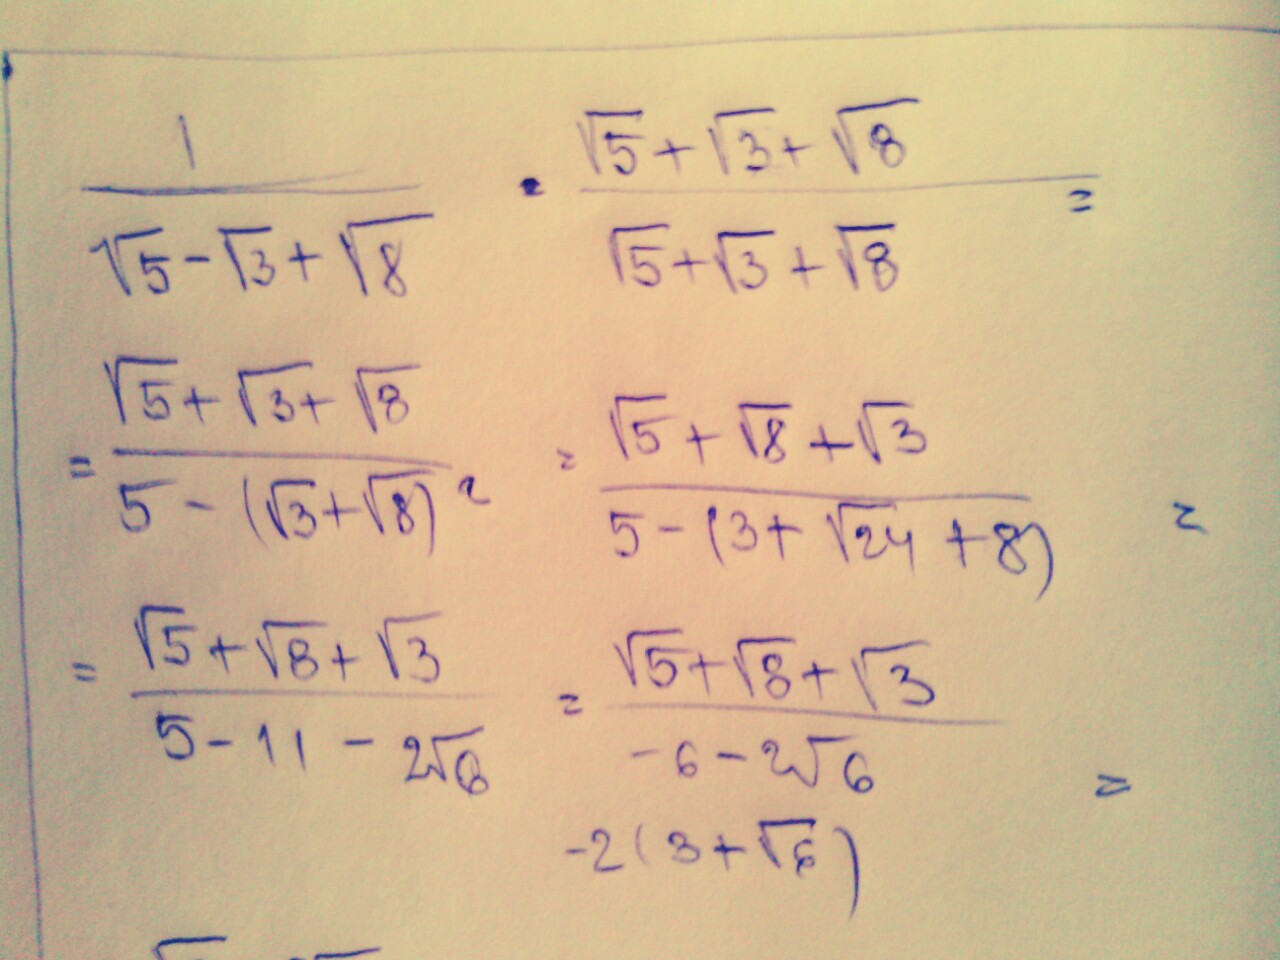 1/(√5-√3+√8) · (√5+√3+√8)/(√5+√3+√8) =
= (√5+√3+√8)/(5-(√3+√8)²) = (√5+√8+√3)/(5-(3+√24+8)) =
= (√5+√8+√3)/(5-11-2√6) = (√5+√8+√3)/(-6-2√6) =
-2(3+√6)